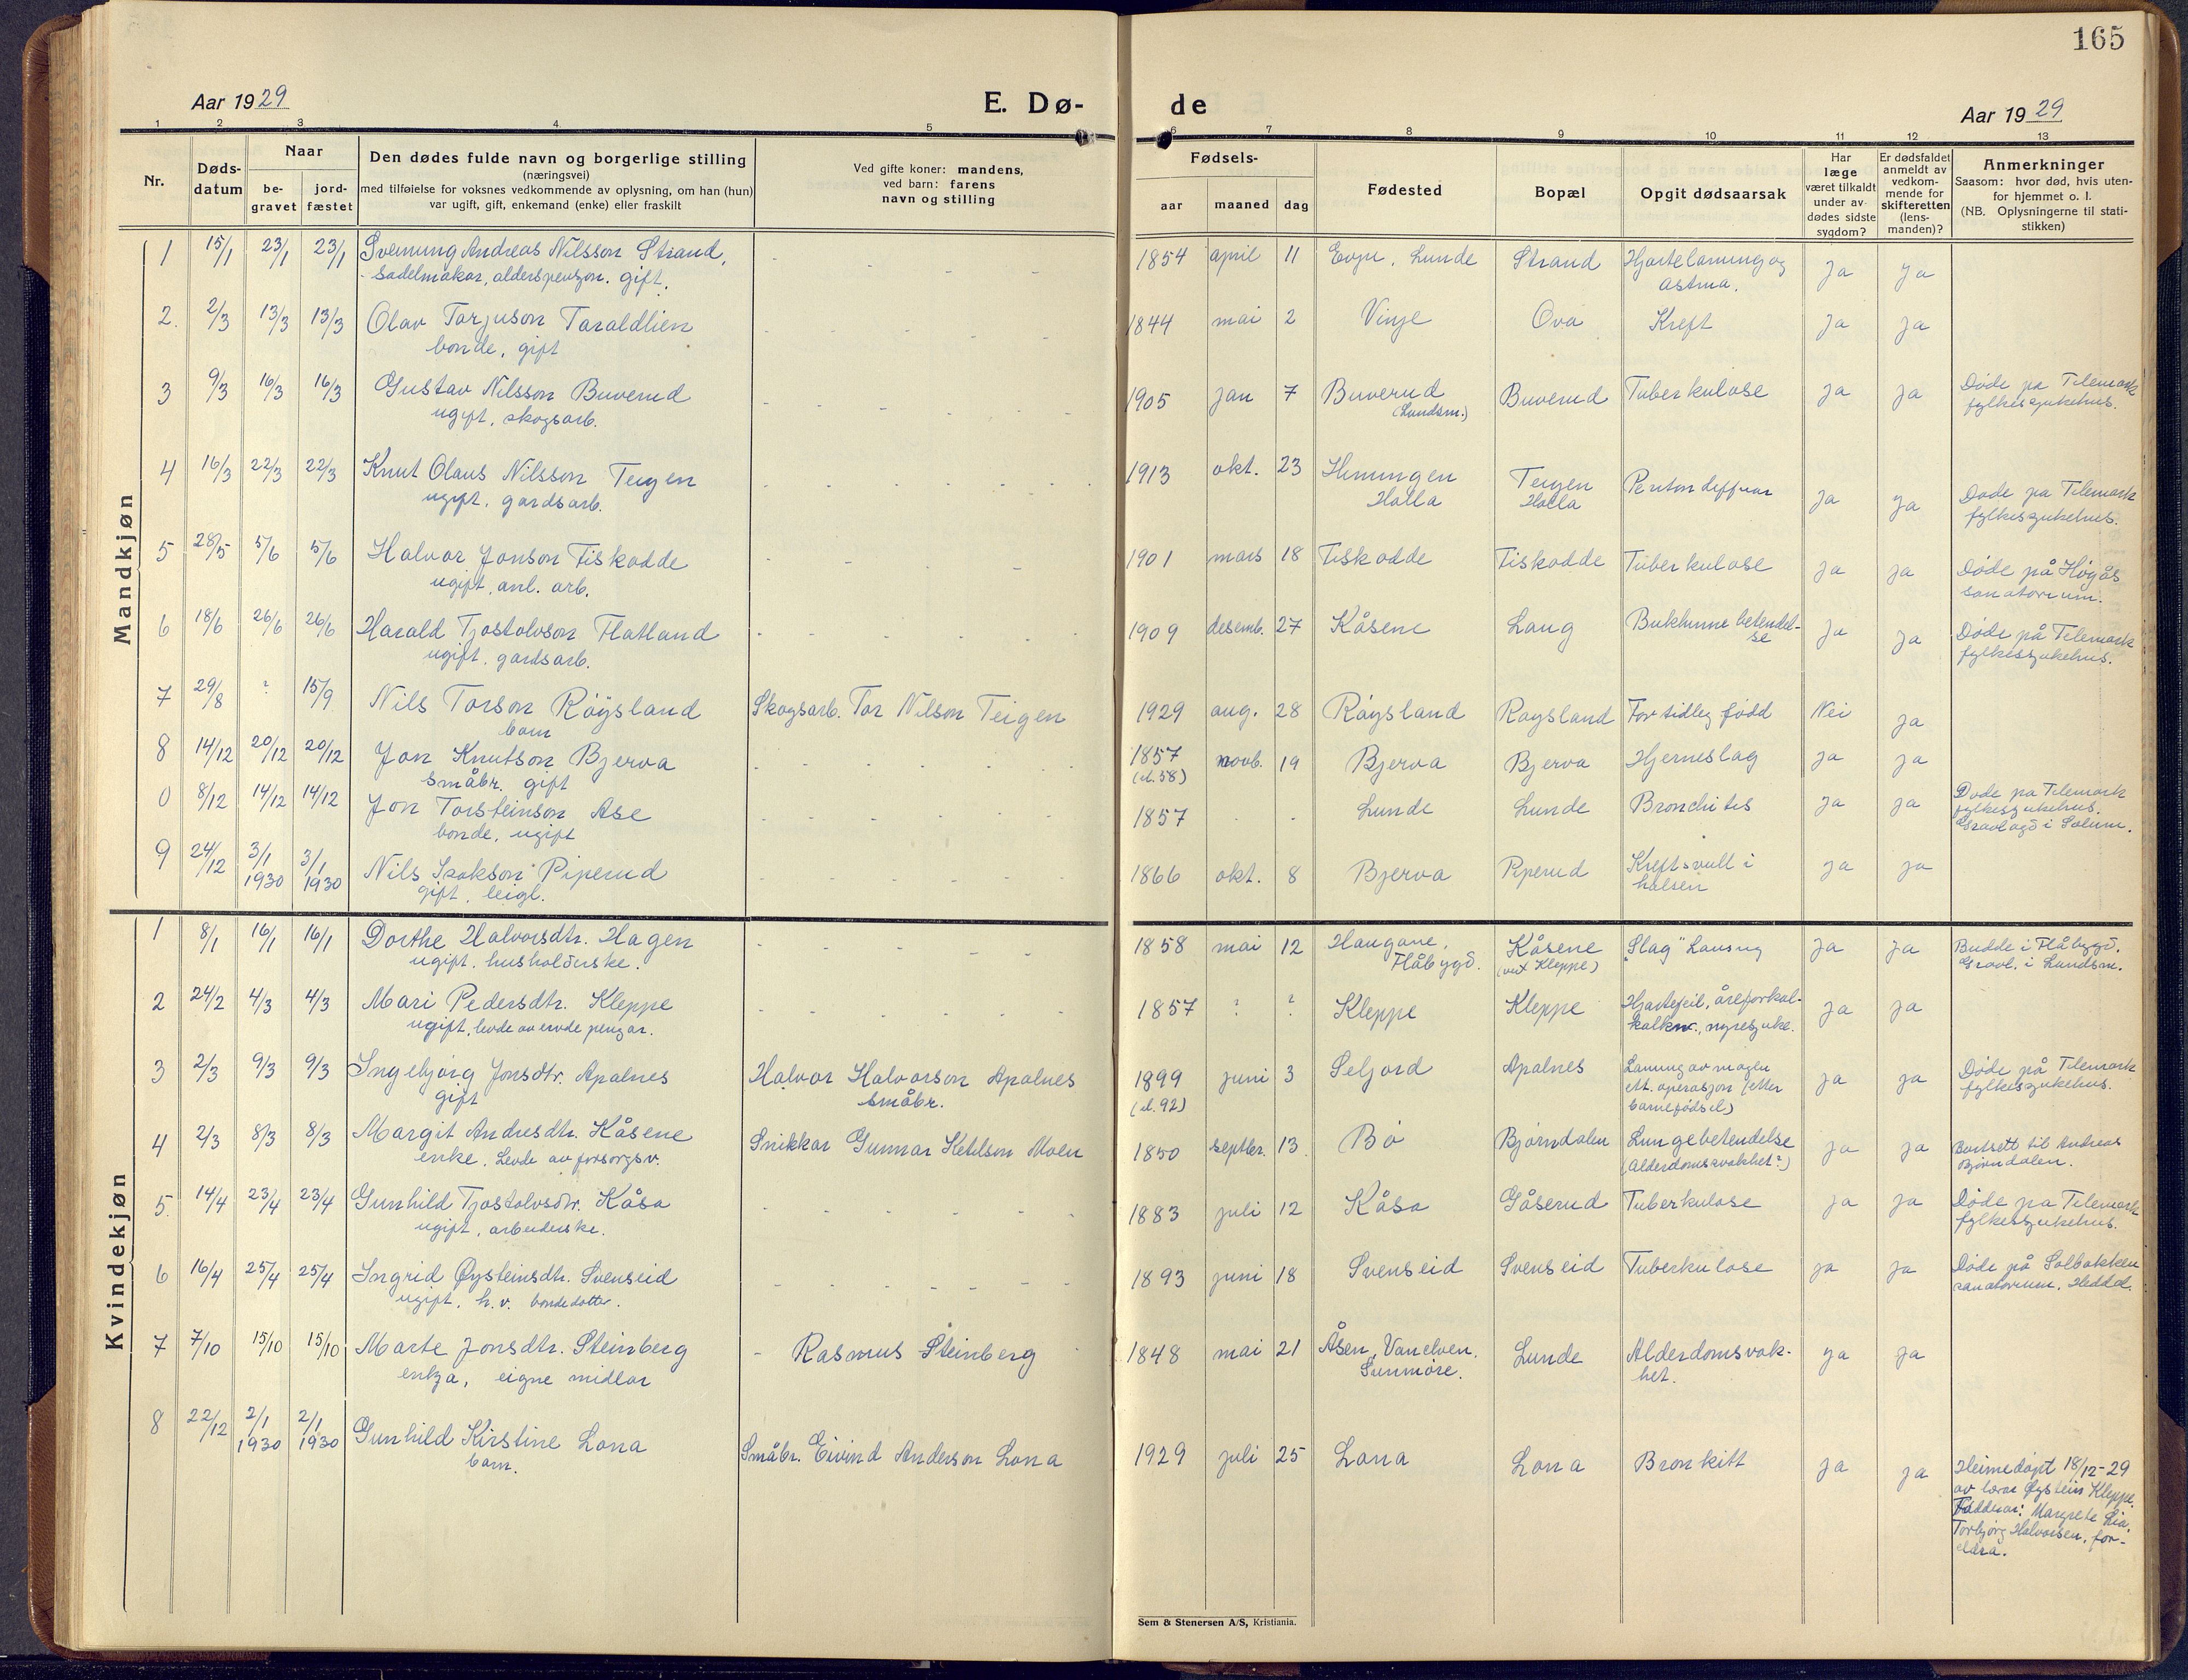 165
Aar 1929
E. Dø-
de
Aar 1929
1 2 3 4 5 6 7 8 9 10 11 12 13
Nr.
Døds-
datum
Naar
be-
gravet
jord-
fæstet
Den dødes fulde navn og borgerlige stilling
(næringsvei)
med tilføielse for voksnes vedkommende av oplysning, om han (hun)
var ugift, gift, enkemand (enke) eller fraskilt
Ved gifte koner: mandens,
ved barn: farens
navn og stilling
Fødsels-
aar maaned dag
Fødested
Bopæl
Opgit dødsaarsak
Har
læge
været tilkaldt
under av-
dødes sidste
sygdom?
Er dødsfaldet
anmeldt av
vedkom-
mende for
skifteretten
(lens-
manden)?
Anmerkninger
Saasom: hvor død, hvis uten-
for hjemmet o. l.
(NB. Oplysningerne til stati-
stikken)
Mandkjøn
1 15/1 23/1 23/1 Sveinung Andreas Nilsson Strand, - - - - 1854 april 11 Evju, Lunde Strand Hjartelamning og Ja Ja
sadelmakar, alderspensjon. gift. astma.
2. 2/3 13/3 13/3 Olav Tarjuson Taraldlien - - - - - 1844 mai 2 Vinje Ova Kreft Ja Ja
bonde, gift
3 9/3 16/3 16/3 Gustav Nilsson Buverud - - - - - - 1905 jan 7 Buverud Buverud Tuberkulose Ja Ja Døde på Telemark
ugift, skogsarb. (Lundsm.) fylkessjukehus.
4 16/3 22/3 22/3 Knut Olaus Nilsson Teigen - - - - - - 1913 okt. 23 Teigen Ja Ja Døde på Telemark
ugift, gardsarb. Holla Holla fylkessjukehus.
5 28/5 5/6 5/6 Halvor Jonson Tiskodde - - - - 1901 mars 18 Tiskodde Tiskodde Tuberkulose Ja Ja Døde på Høgås
ugift, anl. arb. sanatorium.
6 18/6 26/6 26/6 Harald Tjostolvson Flatland - - - - - - 1909 desemb. 27 Kåsene Laug Bukhinnebetendel- Ja Ja Døde på Telemark
ugift, gardsarb. se fylkessjukehus.
7 29/8 ? 15/9 Nils Torson Røysland Skogsarb. Tor Nilson Teigen 1929 aug. 28 Røysland Røysland For tidleg fødd Nei Ja
barn
8 14/12 20/12 20/12 Jon Knutson Bjerva - - - - - - 1857 novb. 19 Bjerva Bjerva Hjerneslag Ja Ja
småbr. gift (el. 58)
0 8/12 14/12 14/12 Jon Torsteinson Ase - - - - - - 1857 - - Lunde Lunde Bronchitis Ja Ja Døde på Telemark
bonde, ugift fylkessjukehus.
Gravlagd i Solum.
9 24/12 3/1 1930 3/1 1930 Nils Isakson Piperud - - - - - - 1866 okt. 8 Bjerva Piperud Kreftsvull i Ja Ja
gift, leigl. halsen
Kvindekjøn
1 8/1 16/1 16/1 Dorthe Halvorsdtr. Hagen - - - - - - 1858 mai 12 Haugane, Kåsene "Slag" Lausug Ja Ja Budde i Flåbygd.
ugift, husholderske. Flåbygd. (unt Kleppe) Gravl. i Lundsm.
2 24/2 4/3 4/3 Mari Pedersdtr. Kleppe - - - - - - 1857 ? ? Kleppe Kleppe Hjartefeil, åreforkal- Ja Ja
ugift, levde av ervde pengar. kalkn., nyresjuke.
3 2/3 9/3 9/3 Ingebjørg Jonsdtr. Apalnes Halvor Halvorson Apalnes 1899 juni 3 Seljord Apalnes Lamning av magen Ja Ja Døde på Telemark
gift småbr. (el. 92) ett. operasjon (etter fylkessjukehus.
barnefødsel)
4 2/3 8/3 8/3 Margit Andresdtr. Kåsene Snikkar Gunnar Ketilson Moen 1850 septbr. 13 Bø Bjørndalen Lungebetendelse Ja Ja Bortsett til Andreas
enke. Levde av forsorgsv. (Alderdomssvakhet?) Bjørndalen.
5. 14/4 23/4 23/4 Gunhild Tjostolvsdtr. Kåsa - - - - - - 1883 juli 12 Kåsa Gåserud Tuberkulose Ja Ja Døde på Telemark
ugift, arbeiderske. fylkessjukehus.
6 16/4 25/4 25/4 Ingrid Øysteinsdtr. Svenseid - - - - - - 1893 juni 18 Svenseid Svenseid Tuberkulose Ja Ja Døde på Solbakken
ugift, h.v. bondedotter. sanatorium, Heddal.
7 7/10 15/10 15/10 Marte Jonsdtr. Steinberg - Rasmus Steinberg 1848 mai 21 Åsen, Vanelven, Lunde Alderdomsvak- Ja Ja
enkja, eigne midlar Sunmøre. het.
8 22/12 2/1 1930 2/1 1930 Gunhild Kirstine Lona Småbr. Eivind Anderson Lona 1929 juli 25 Lona Lona Bronkitt Ja Ja Heimedøpt 18/12-29
barn. av lærar Øystein Kleppe.
Faddrar: Margrete Lia,
Torbjørg Halvorsen, for-
eldra.
Sem & Stenersen A/S, Kristiania.